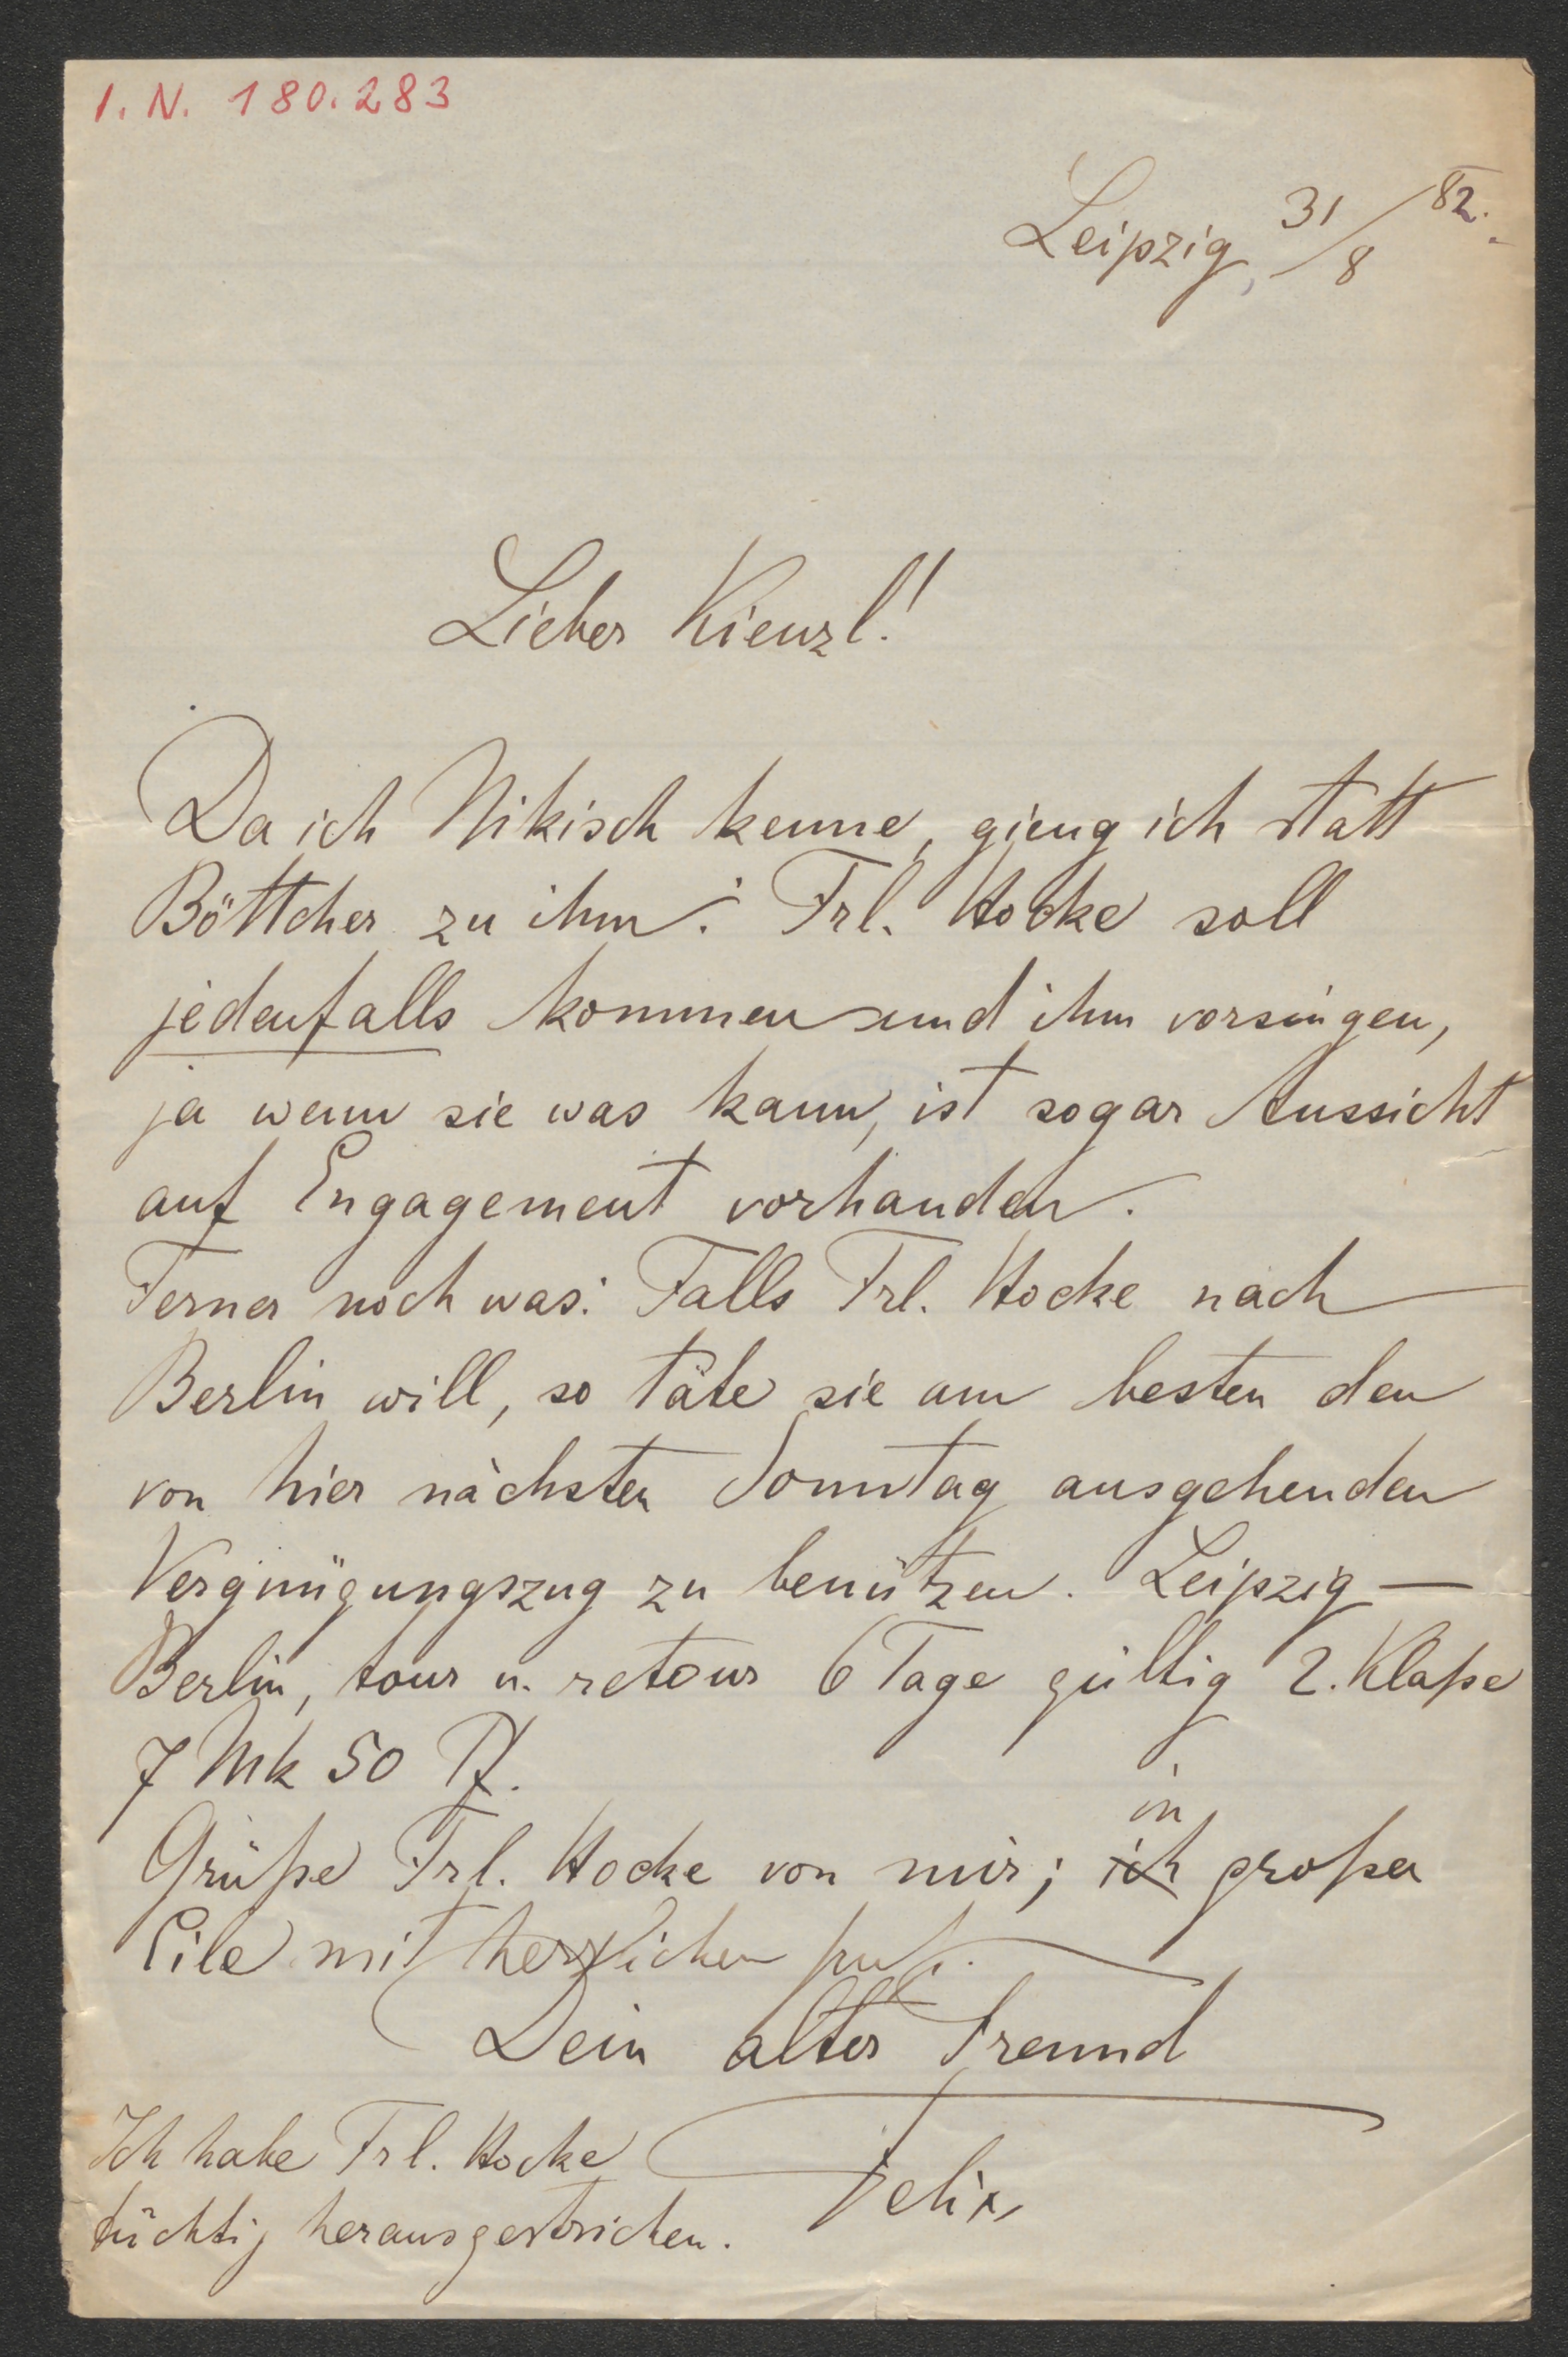 I. N. 180.283
Leipzig, 31/8 82.
Lieber Kienzl!
Da ich Nikisch kenne, gieng ich statt
Böttcher zu ihm. Frl. Hocke soll
jedenfalls kommen und ihm vorsingen,
ja wenn sie was kann, ist sogar Aussicht
auf Engagement vorhanden.
Ferner noch was: Falls Frl. Hocke nach
Berlin will, so täte sie am besten den
von hier nächsten Sonntag ausgehenden
Vergnügungszug zu benützen. Leipzig —
Berlin, tour u. retour 6 Tage gültig 2. Klaße
7 Mk 50 Pf.
in
Grüße Frl. Hocke von mir; ich großer
Eile mit herzlichem
Dein alter Freund
Ich habe Frl. Hocke
Felix
tüchtig herausgestrichen.